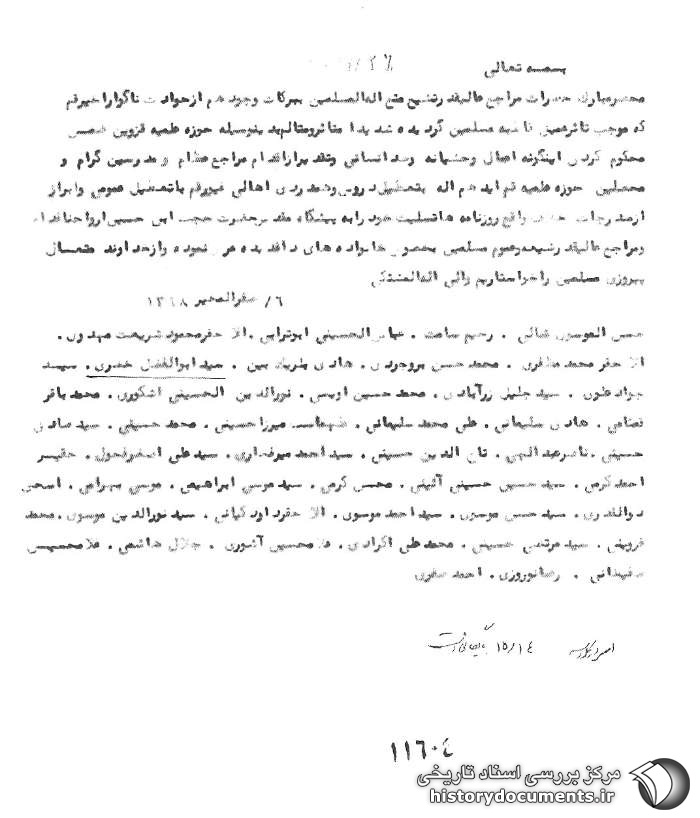 بسمه تعالی
محضر مبارک حضرات مراجع عالیقدر تشیع متع الله المسلمین ببرکات وجودهم از حوادث ناگوار اخیر قم
که موجب تاثر عمیق قاطبه مسلمین گردیده شدیدا متاثر و متالم بدینوسیله حوزه علمیه قزوین ضمن
محکوم کردن اینگونه اعمال وحشیانه وضد انسانی وتقدیر از اقدام مراجع عظام و مدرسین گرام و
محصلین حوزه علمیه قم ایدهم اله بتعطیل دروس وهمدردی اهالی غیور قم با تعطیل عمومی وابراز
انزجار واقع روزنامه ها تسلیت خود را به پیشگاه مقدس حضرت حجت ابن حسن ارواحنا فداه
ومراجع عالیقدر شیعه وعموم مسلمین بخصوص خانواده های داغدیده عرض نموده واز خداوند متعال
پیروزی مسلمین را خواستاریم والی اله المشتکی
۶/ صفر الخیر ۱۳۹۸
حسن الموسوی شالی . رحیم سامت . عباس الحسینی ابوترابی . الاحقر محمود شریعت مهدوی .
الاحقر محمد مظفری . محمد حسن بروجردی . هادی باریک بین . سید ابوالفضل خضری . سید
جواد علوی . سید جلیل زرآبادی . محمد حسین اویسی . نورالدین الحسینی اشکوری . محمد باقر
قضاعی . هادی سلیمانی . علی محمد سلیمانی . طهماسب میرزا حسینی . محمد حسینی . سید صادق
حسینی . ناصر عبدالهی . تاج الدین حسینی . سید احمد میرغفاری . سید علی اصغر فحول . حقیر
احمد کرمی . سید حسین حسینی آئینی . محسن کرمی . سید موسی ابراهیمی . موسی بهرامی . اسحق
ذوالقدری . سید حسن موسوی . سید احمد موسوی . الاحقر داود کیانی . سید نورالدین موسوی . محمد
قزوینی . سید مرتضی حسینی . محمد علی اکرادی . غلامحسین آشوری . جلال هاشمی . غلامحسین
سفیدانی . رضا نوروزی . احمد صفری
۱۵/۱۴
۱۱۶۰۴
مرکز بررسی اسناد تاریخی
historydocuments.ir